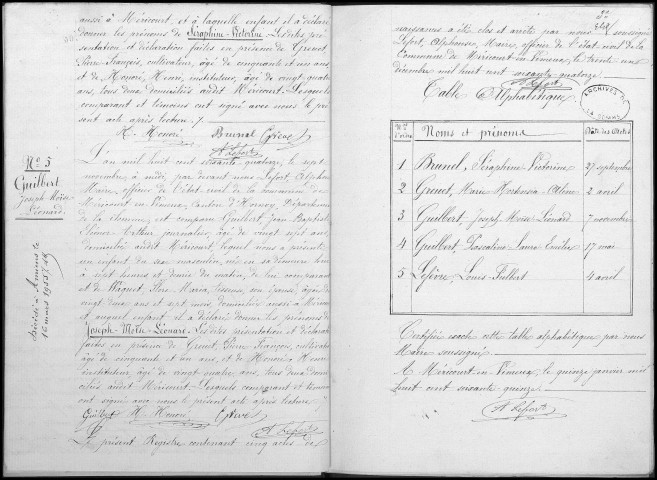 aussi à Méricourt, et à laquelle enfant il a déclaré
donner les prénoms de Séraphine-Victorine. Lesdites pré-
sentation et déclaration faites en présence de Greuet,
Pierre-François, cultivateur, âgé de cinquante et un ans,
et de Honoré, Henri, instituteur, âgé de vingt quatre
ans, tous deux domiciliés audit Méricourt. Lesquels
comparant et témoins ont signé avec nous le pré-
sent acte après lecture. /
H. Honoré Brunel Greuet
A. Lefort
N° 5
Guilbert
Joseph-Moïse
Léonard.
décédé à Amiens le
16 mars 1955
L'an mil huit cent soixante quatorze, le sept
novembre, à midi, par devant nous Lefort, Alphonse
Maire, officier de l'état civil de la commune de
Méricourt en Vimeux, canton d'Hornoy, Département
de la Somme, est comparu Guilbert, Jean Baptiste
Arthur journalier, âgé de vingt sept ans,
domicilié audit Méricourt, lequel nous a présenté
un enfant du sexe masculin, né en sa demeure hier
à sept heures et demie du matin, de lui comparant
et de Waquet, Maria, son épouse, âgée de
vingt deux ans et sept mois, domiciliés aussi à Méricourt
et auquel enfant il a déclaré donner les prénoms de
Joseph-Moïse-Léonard. Lesdites présentation et déclaration
faites en présence de Greuet, Pierre François, cultivateur
âgé de cinquante et un ans, et de Honoré Henri
instituteur, âgé de vingt quatre ans, tous deux domi-
ciliés audit Méricourt. Lesquels comparant et témoins
ont signé avec nous le présent acte après lecture. /
Guilbert H. Honoré Greuet
A. Lefort
Le présent Registre contenant cinq actes de
naissances a été clos et arrêté par nous soussigné
Lefort, Alphonse, Maire, officier de l'état civil de la
Commune de Méricourt en Vimeux, le trente un
décembre mil huit cent soixante quatorze.
A. Lefort
Table Alphabétique
ARCHIVES DE LA SOMME
Nos d'ordre Noms et prénoms Date des Actes
1 Brunel, Séraphine Victorine 27 septembre
2 Greuet, Marie Hortensia 2 avril
3 Guilbert, Joseph Moïse Léonard 7 novembre
4 Guilbert, Pascaline Laure 17 mai
5 Lefèvre, Louis Fulbert 4 avril
Certifiée exacte cette table alphabétique par nous
Maire soussigné
A Méricourt-en-Vimeux, le quinze janvier mil
huit cent soixante quinze.
A. Lefort